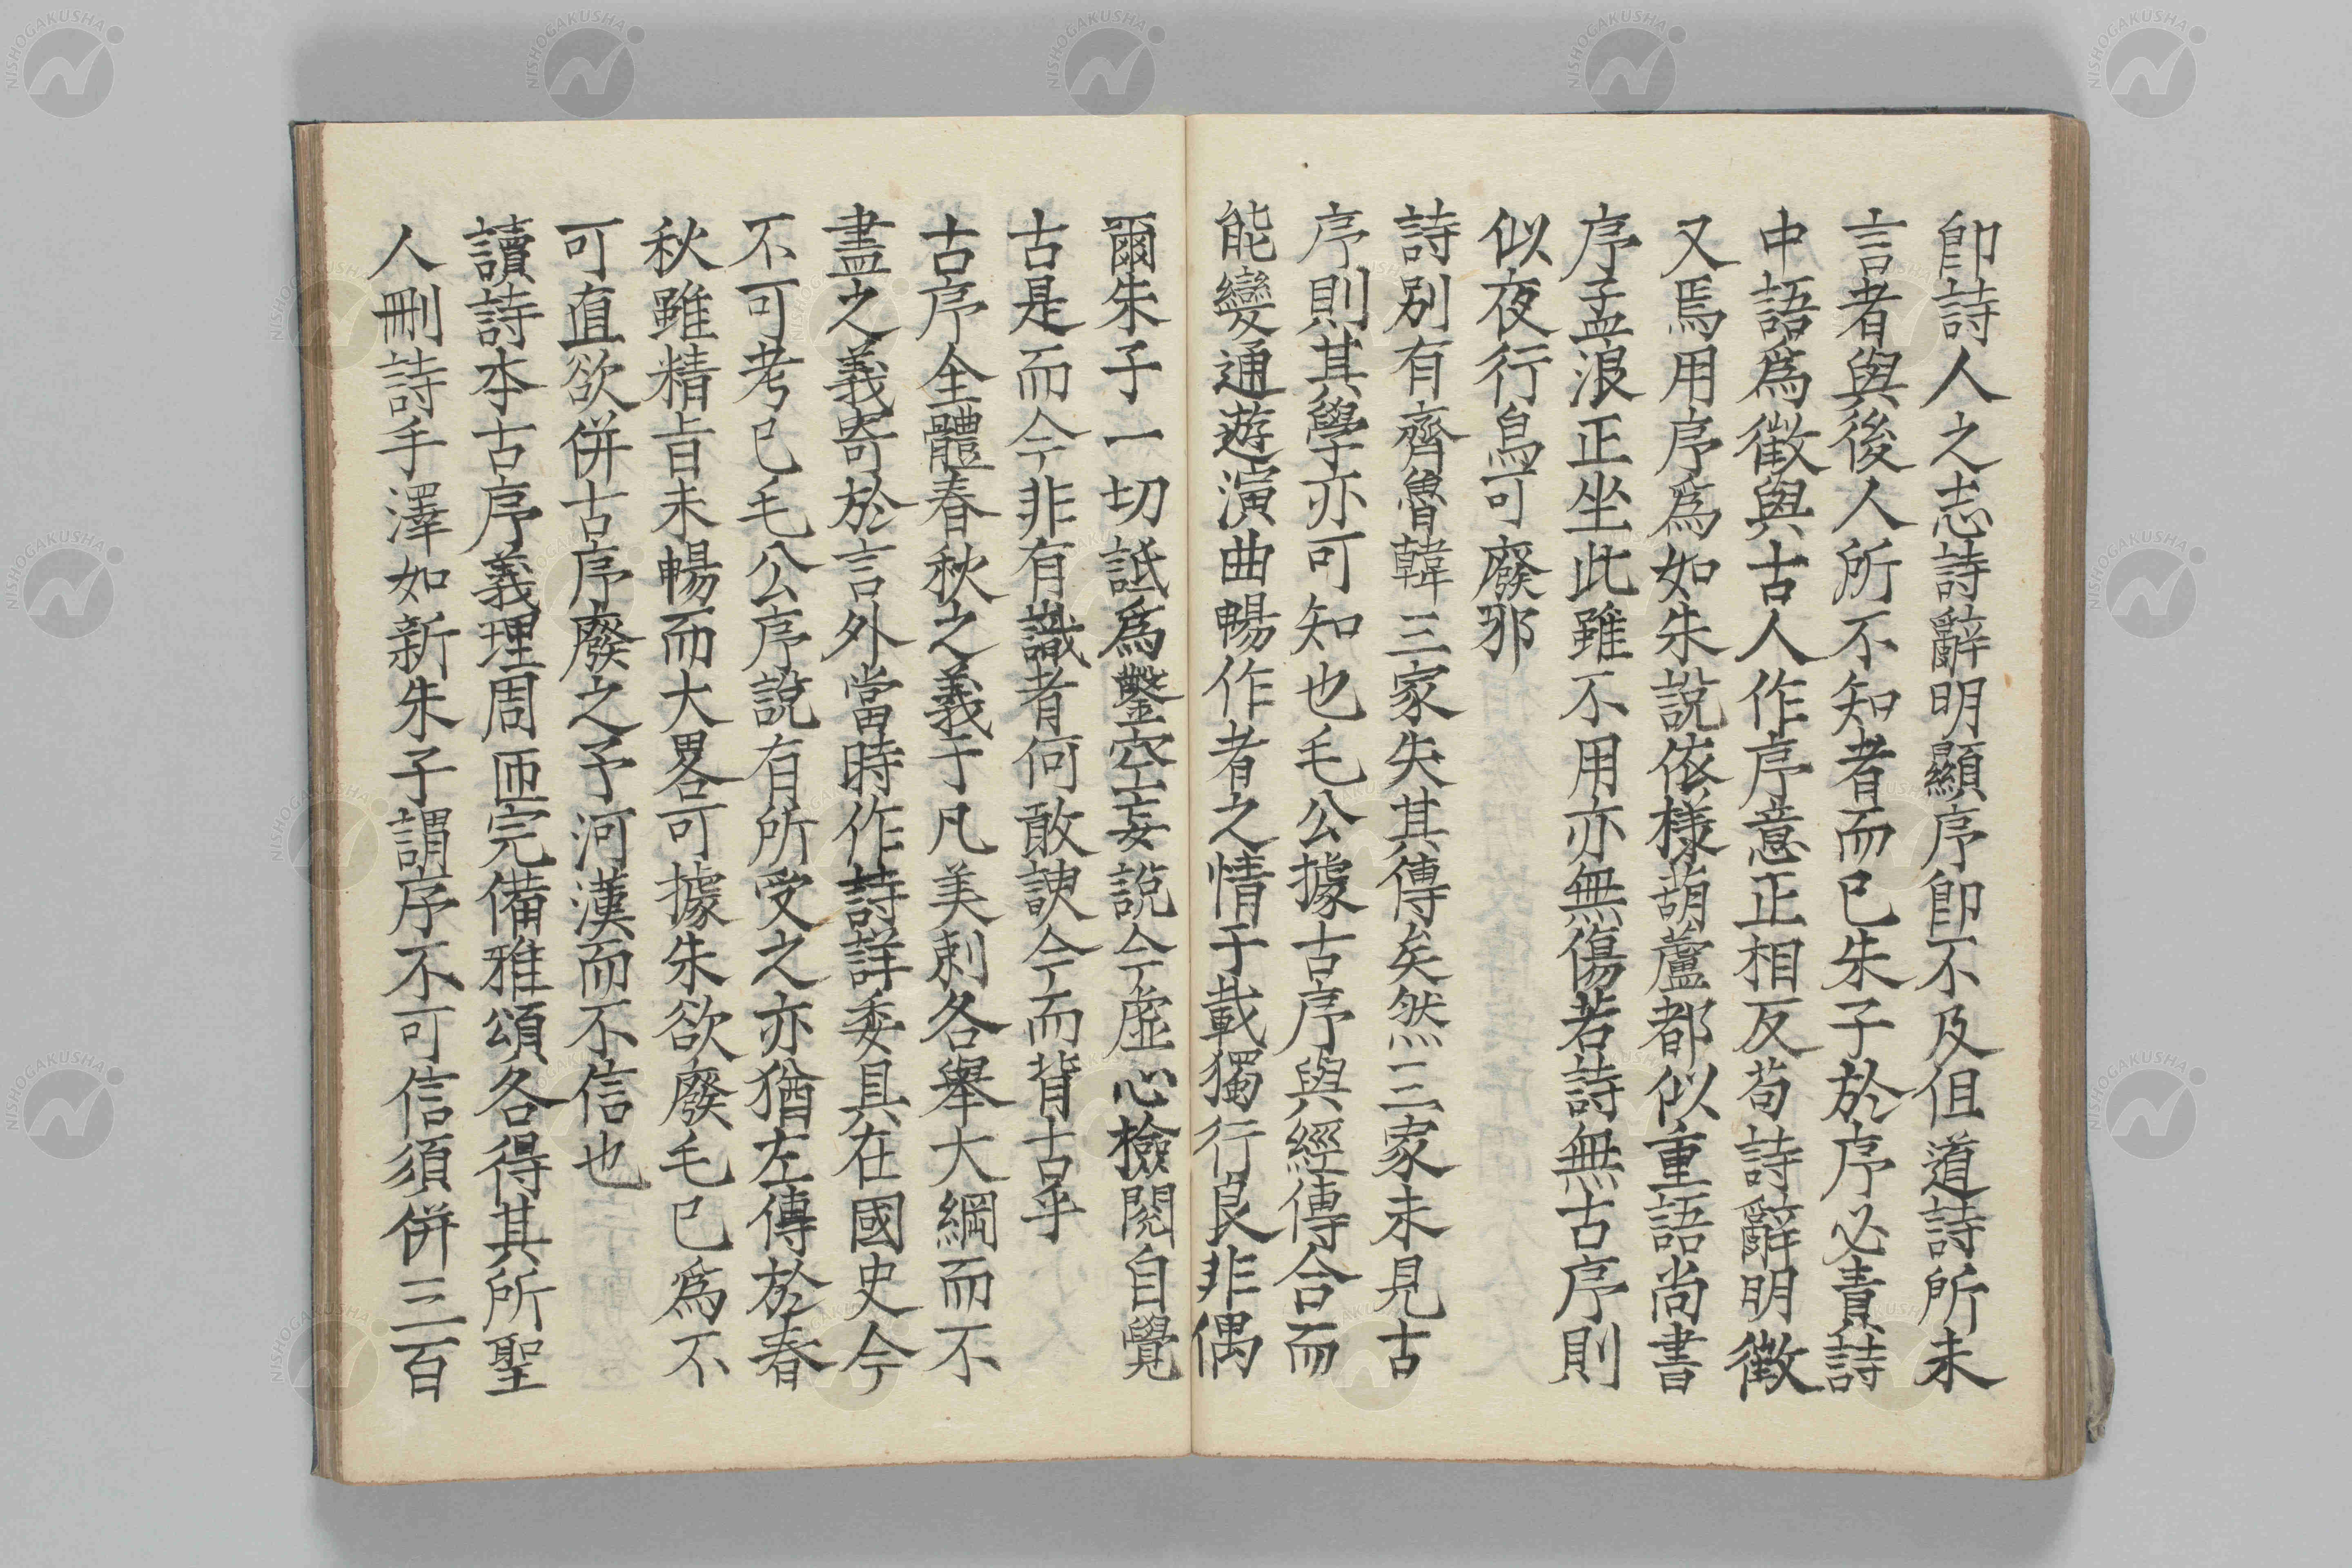 即詩人之志詩辭明顯序即不及但道詩所未
言者與後人所不知者而已朱子於序必責詩
中語爲徵與古人作序意正相反苟詩辭明徵
又焉用序爲如朱說依樣葫蘆都似重語尚書
序孟浪正坐此雖不用亦無傷若詩無古序則
似夜行烏可廢邪
詩別有齊魯韓三家失其傳矣然三家未見古
序則其學亦可知也毛公據古序與經傳合而
能變通遊演曲暢作者之情千載獨行良非偶
爾朱子一切詆爲鑿空妄說今虛心檢閱自覺
古是而今非有識者何敢諛今而背古乎
古序全體春秋之義于凡美刺各舉大綱而不
盡之義寄於言外當時作詩詳委具在國史今
不可考已毛公序說有所受之亦猶左傳於春
秋雖精旨未暢而大畧可據朱欲廢毛已爲不
可直欲併古序廢之予河漢而不信也
讀詩本古序義理周匝完備雅頌各得其所聖
人刪詩手澤如新朱子謂序不可信須併三百
NISHOGAKUSHA